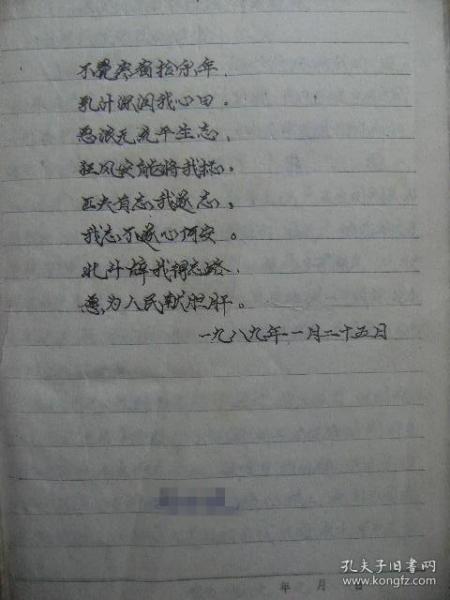 不觉寒窗拾余年,
乳汁深润我心田。
恶浪无 平生志,
狂风安能将我 ,
匹夫有志我遂志,
我志不遂心何安。
北斗 我指志路,
愿为人民献胆肝。
一九八九年一月二十五日
年 月 日
孔夫子旧书网
www.kongfz.com